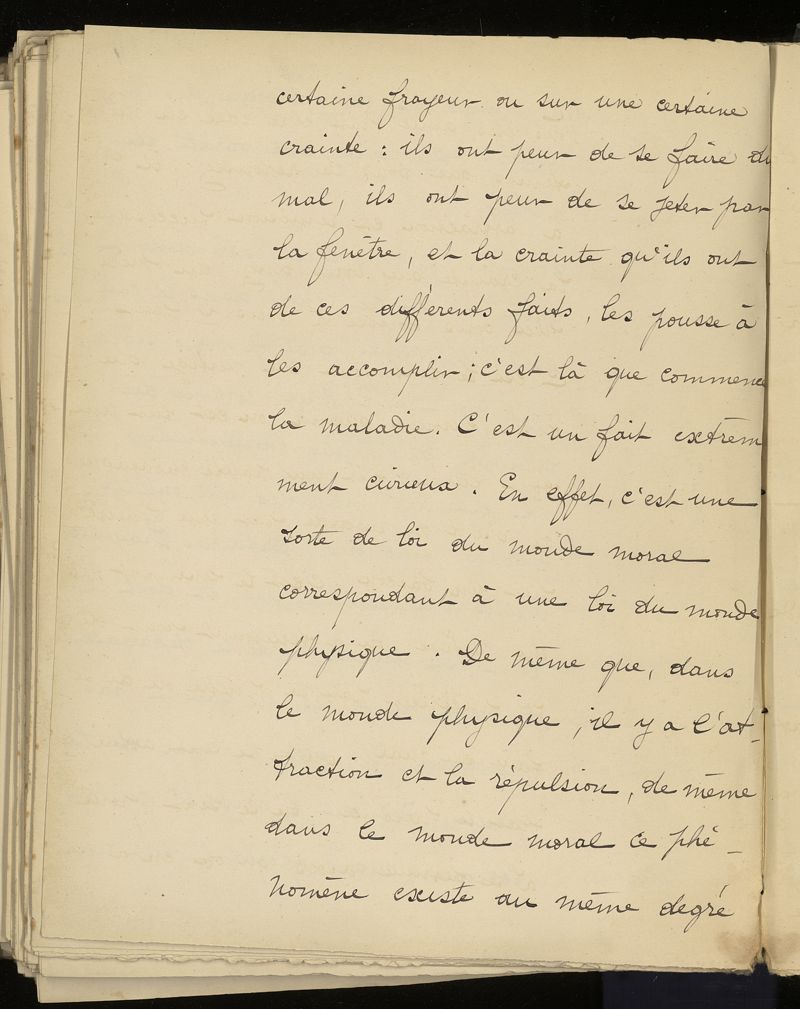 certaine frayeur ou sur une certaine
crainte : ils ont peur de se faire du
mal, ils ont peur de se jeter par
la fenêtre, et la crainte qu'ils ont
de ces différents faits, les pousse à
les accomplir ; c'est là que commence
la maladie. C'est un fait extrêm
ment curieux. En effet, c'est une
sorte de loi du monde moral
correspondant à une loi du monde
physique. De même que, dans
le monde physique, il y a l'at-
traction et la répulsion, de même
dans le monde moral ce phé-
nomène existe au même degré